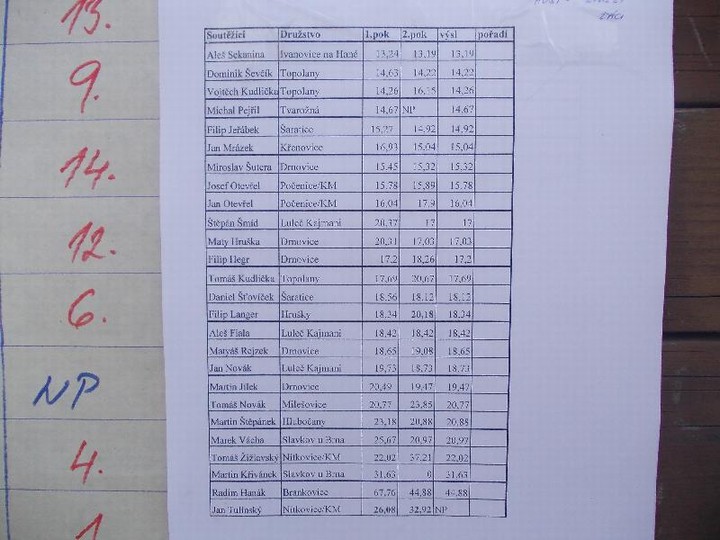 13.
9.
14.
12.
6.
NP
4.
Soutěžící Družstvo 1.pok 2.pok výsl pořadí
Aleš Sekanina Ivanovice na Hané 13,24 13,19 13,19
Dominik Ševčík Topolany 14,63 14,22 14,22
Vojtěch Kudlička Topolany 14,26 16,15 14,26
Michal Pejřil Tvarožná 14,67 NP 14,67
Filip Jeřábek Šaratice 15,27 14,92 14,92
Jan Mrázek Křenovice 16,93 15,04 15,04
Miroslav Šutera Drnovice 15,45 15,32 15,32
Josef Otevřel Počenice/KM 15,78 15,89 15,78
Jan Otevřel Počenice/KM 16,04 17,9 16,04
Štěpán Šmíd Luleč Kajmani 20,37 17 17
Maty Hruška Drnovice 20,31 17,03 17,03
Filip Hegr Drnovice 17,2 18,26 17,2
Tomáš Kudlička Topolany 17,69 20,67 17,69
Daniel Šťovíček Šaratice 18,56 18,12 18,12
Filip Langer Hrušky 18,34 20,18 18,34
Aleš Fiala Luleč Kajmani 18,42 18,42 18,42
Matyáš Rejzek Drnovice 18,65 19,08 18,65
Jan Novák Luleč Kajmani 19,73 18,73 18,73
Martin Jílek Drnovice 20,49 19,47 19,47
Tomáš Novák Milešovice 20,77 23,85 20,77
Martin Štěpánek Hlubočany 23,18 20,88 20,88
Marek Vácha Slavkov u Brna 25,67 20,97 20,97
Tomáš Žižlavský Nítkovice/KM 22,02 37,21 22,02
Martin Křivánek Slavkov u Brna 31,63 0 31,63
Radim Hanák Brankovice 67,76 44,88 44,88
Jan Tulinský Nítkovice/KM 26,08 32,92 NP